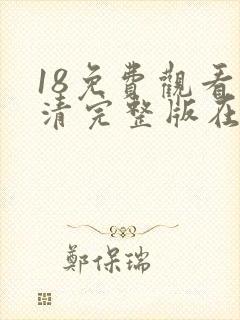 18免費觀看
清完整版在
鄭保瑞